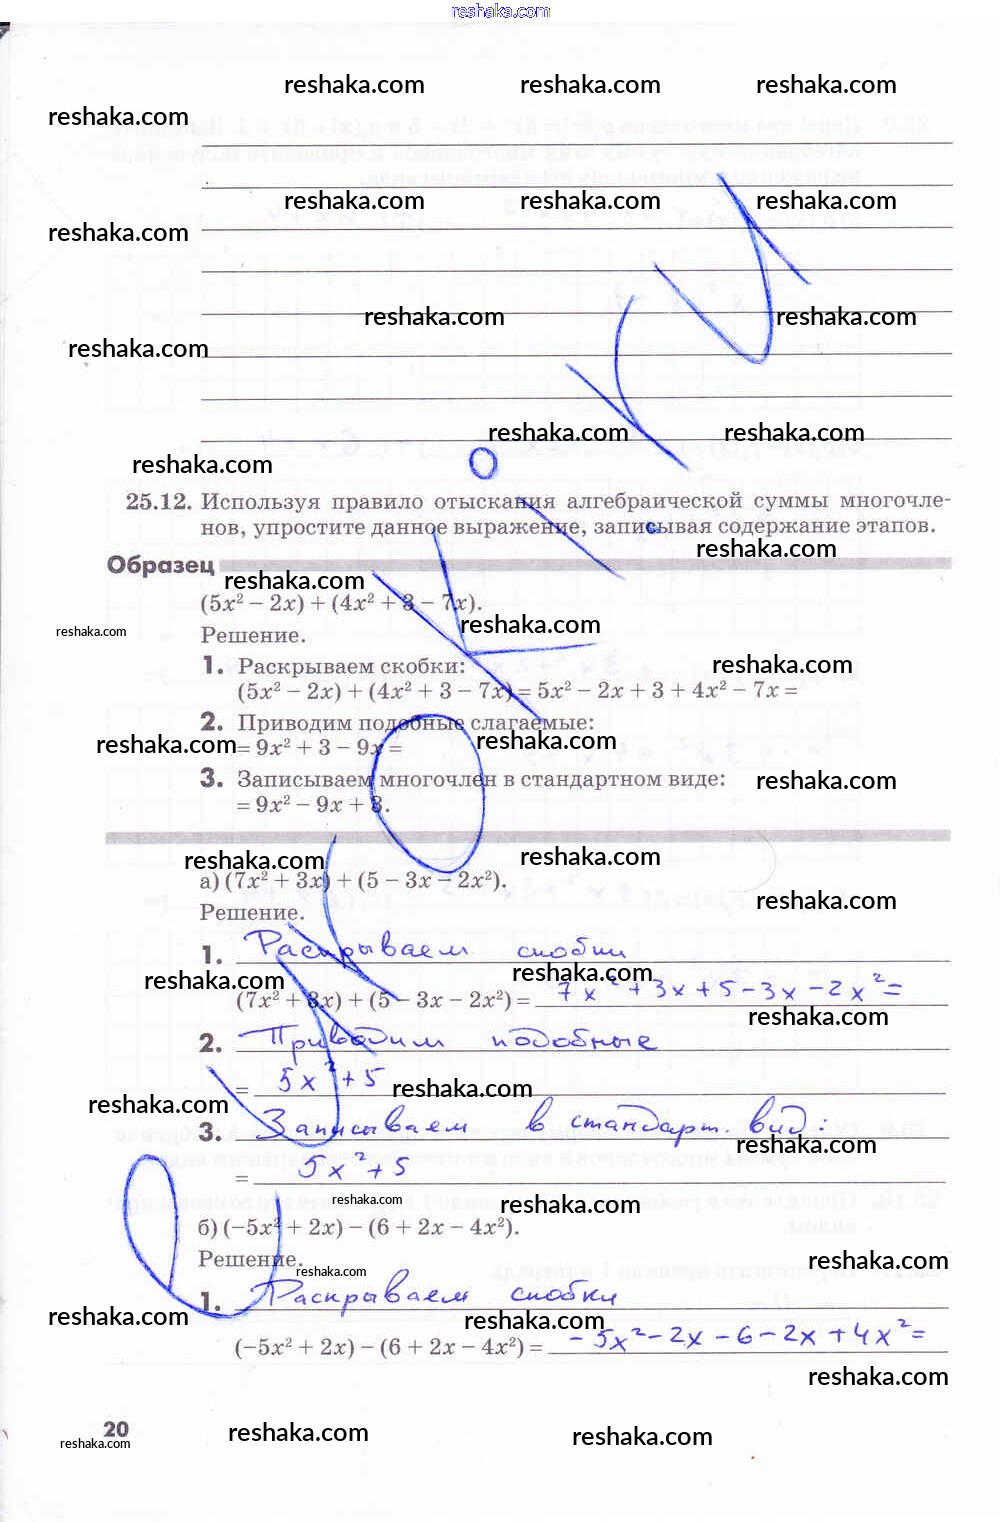 reshaka.com
reshaka.com reshaka.com reshaka.com
reshaka.com
reshaka.com reshaka.com reshaka.com
reshaka.com
reshaka.com reshaka.com
reshaka.com
reshaka.com reshaka.com
reshaka.com
25.12. Используя правило отыскания алгебраической суммы многочле-
нов, упростите данное выражение, записывая содержание этапов.
reshaka.com
Образец
reshaka.com
(5x² − 2x) + (4x² + 3 − 7x).
reshaka.com
reshaka.com
Решение.
reshaka.com
1. Раскрываем скобки:
(5x² − 2x) + (4x² + 3 − 7x) = 5x² − 2x + 3 + 4x² − 7x =
2. Приводим подобные слагаемые:
reshaka.com
= 9x² + 3 − 9x =
reshaka.com
3. Записываем многочлен в стандартном виде:
reshaka.com
= 9x² − 9x + 3.
reshaka.com reshaka.com
а) (7x² + 3x) + (5 − 3x − 2x²).
reshaka.com
Решение.
1. Раскрываем скобки
reshaka.com reshaka.com
(7x² + 3x) + (5 − 3x − 2x²) = 7x² + 3x + 5 − 3x − 2x² =
reshaka.com
2. Приводим подобные
= 5x² + 5
reshaka.com
reshaka.com
3. Записываем в стандарт. вид:
reshaka.com
= 5x² + 5
reshaka.com reshaka.com
б) (−5x² + 2x) − (6 + 2x − 4x²).
Решение.
reshaka.com
reshaka.com
1. Раскрываем скобки
reshaka.com reshaka.com
(−5x² + 2x) − (6 + 2x − 4x²) = −5x² − 2x − 6 − 2x + 4x² =
reshaka.com
20
reshaka.com
reshaka.com
reshaka.com